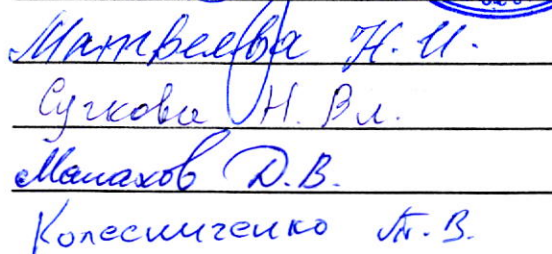 Матвеева Н. И.
Сучкова Н. Вл.
Малахов Д. В.
Колесниченко Т. В.